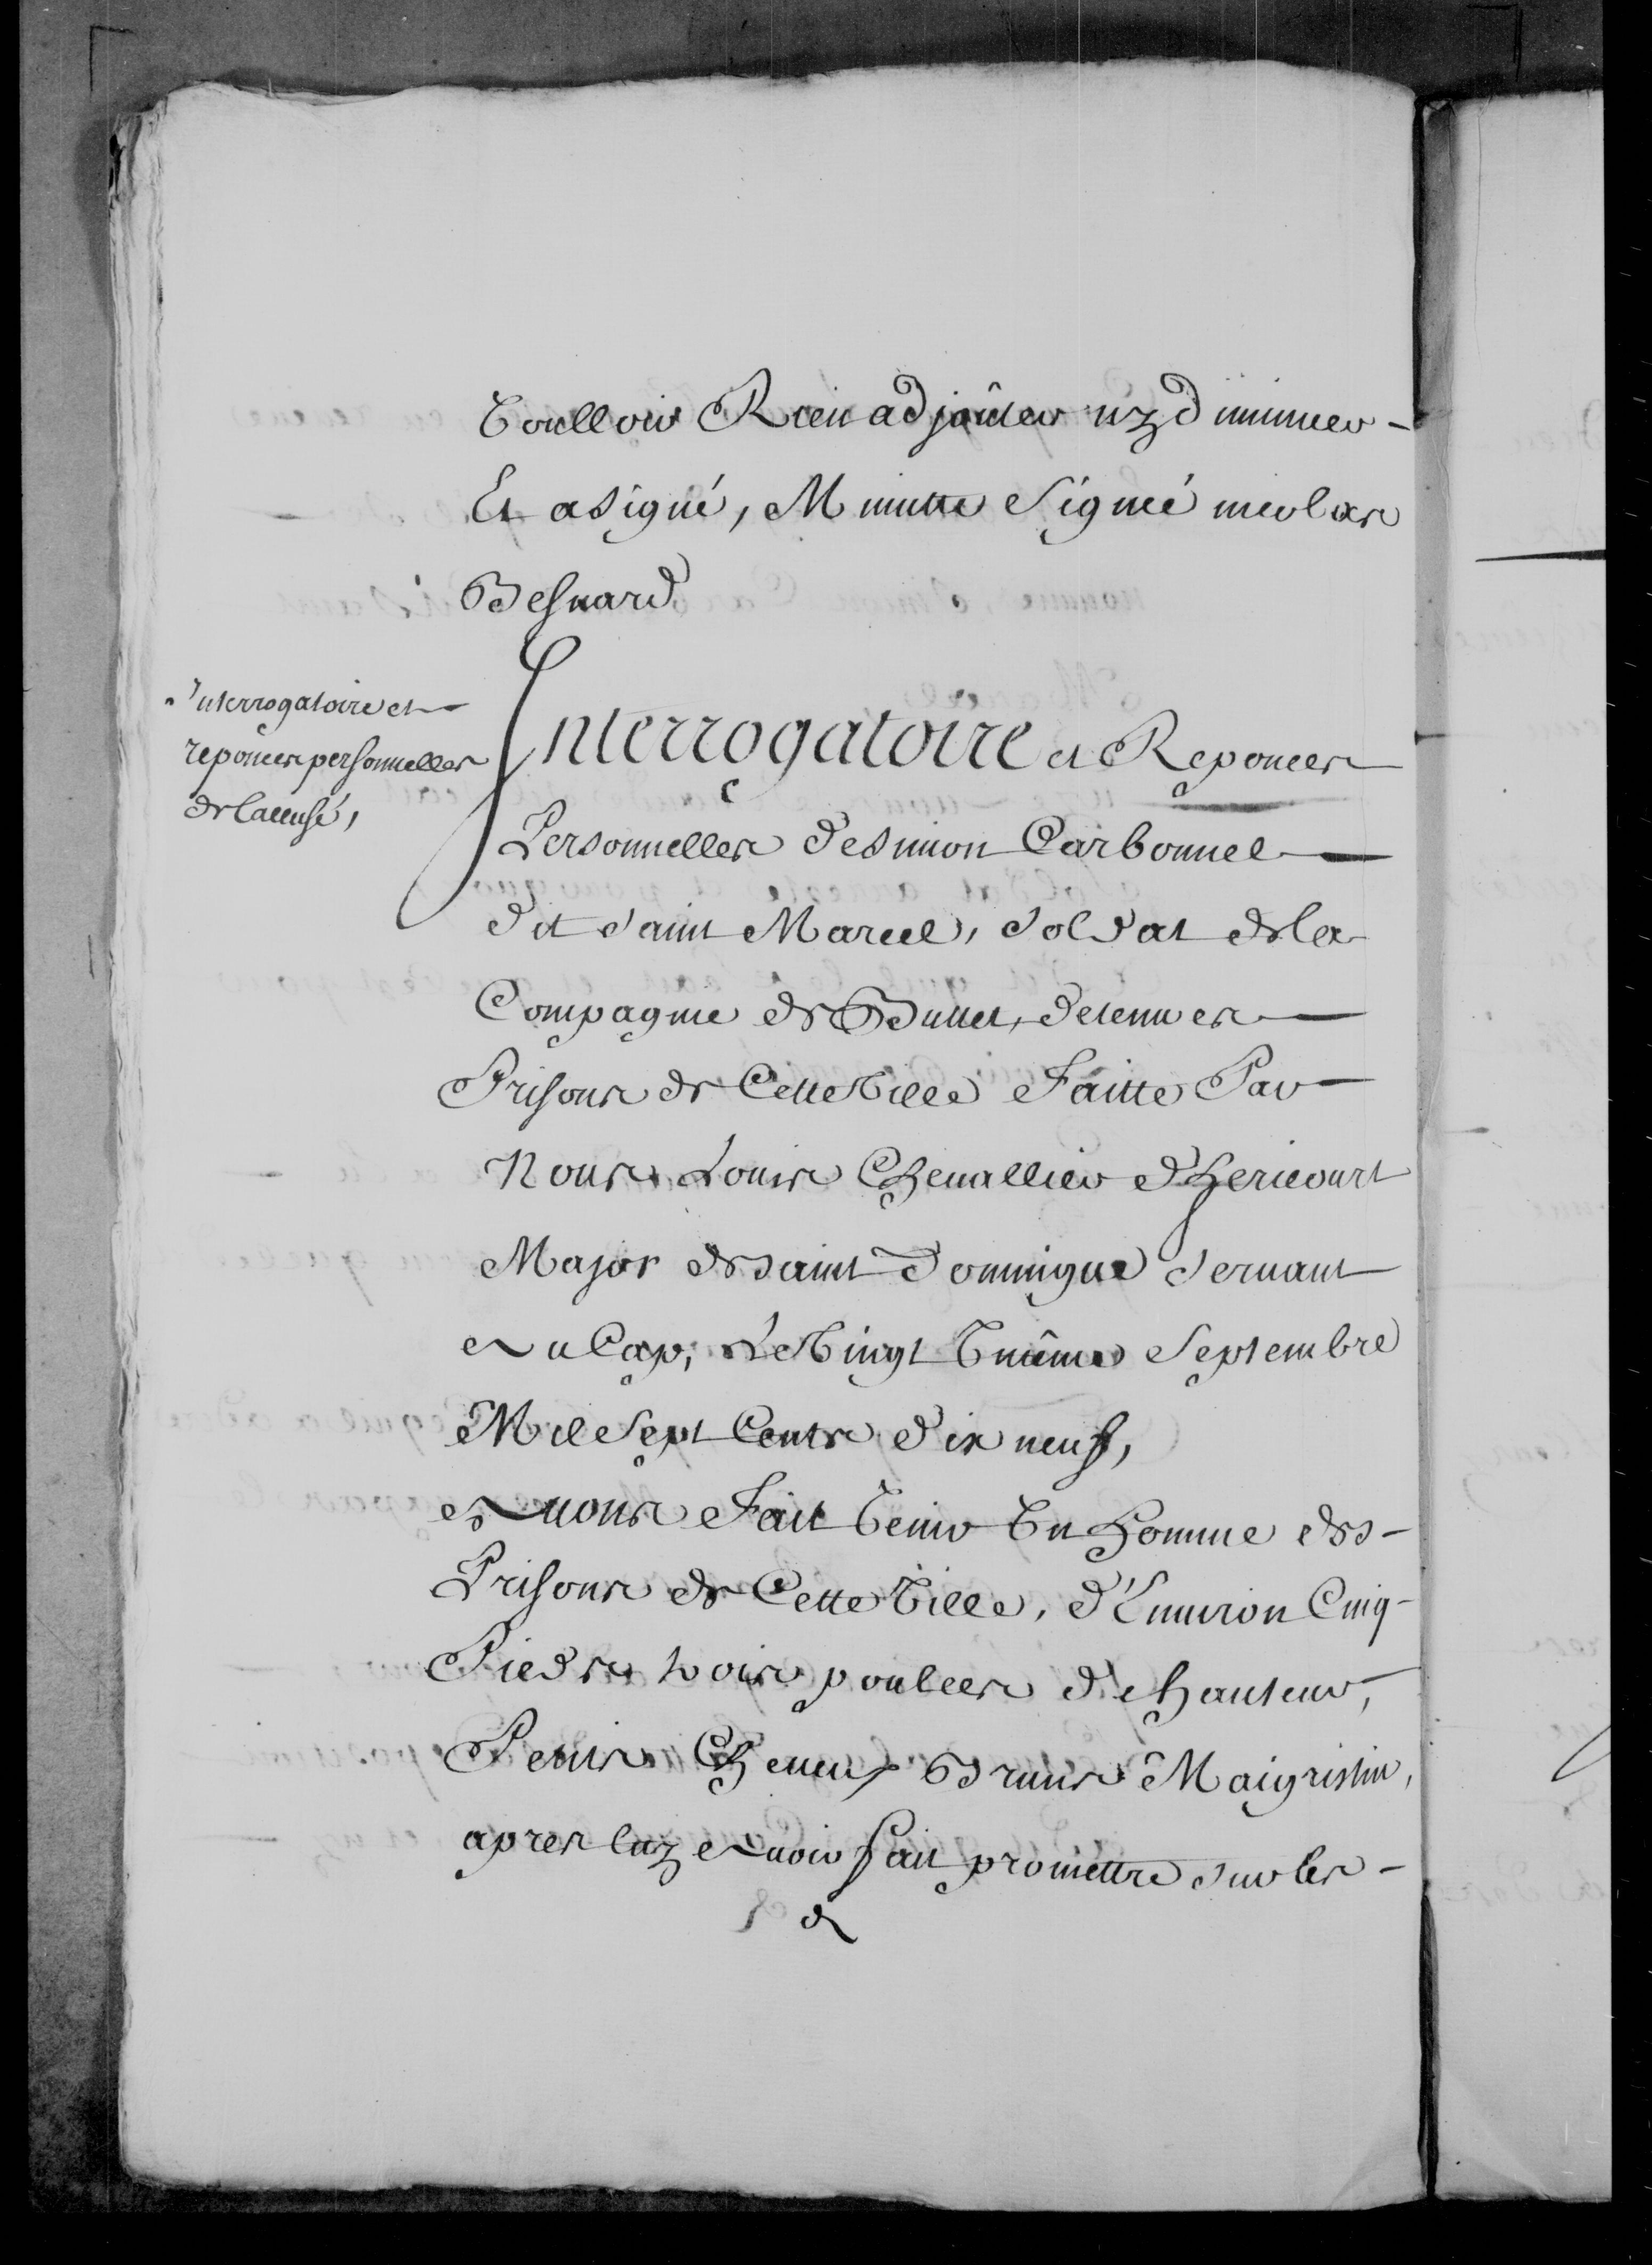 Voulloir Rien adjoûter ny diminuer -
Et a signé, Minutte Signé nicolas
Besnard
Interrogatoire et
reponces personnelles
de laccusé,
Interrogatoire et Reponces
Personnelles de Simon Carbonnel
dit Saint Marcel, Soldat de la
Compagnie de Buttet, detenu es
Prisons de Cette Ville Faitte Par
Nous Louis Chevallier d'hericourt
Major de Saint Domingue Servant
au Cap, Le Vingt Unième Septembre
Mil Sept Cents dix neuf,
avons Fait Venir Un homme des
Prisons de Cette Ville, d'Environ Cinq
Pieds trois poulces de hauteur,
Petits Cheveux Bruns Maigrislin,
apres luy avoir fait promettre sur les